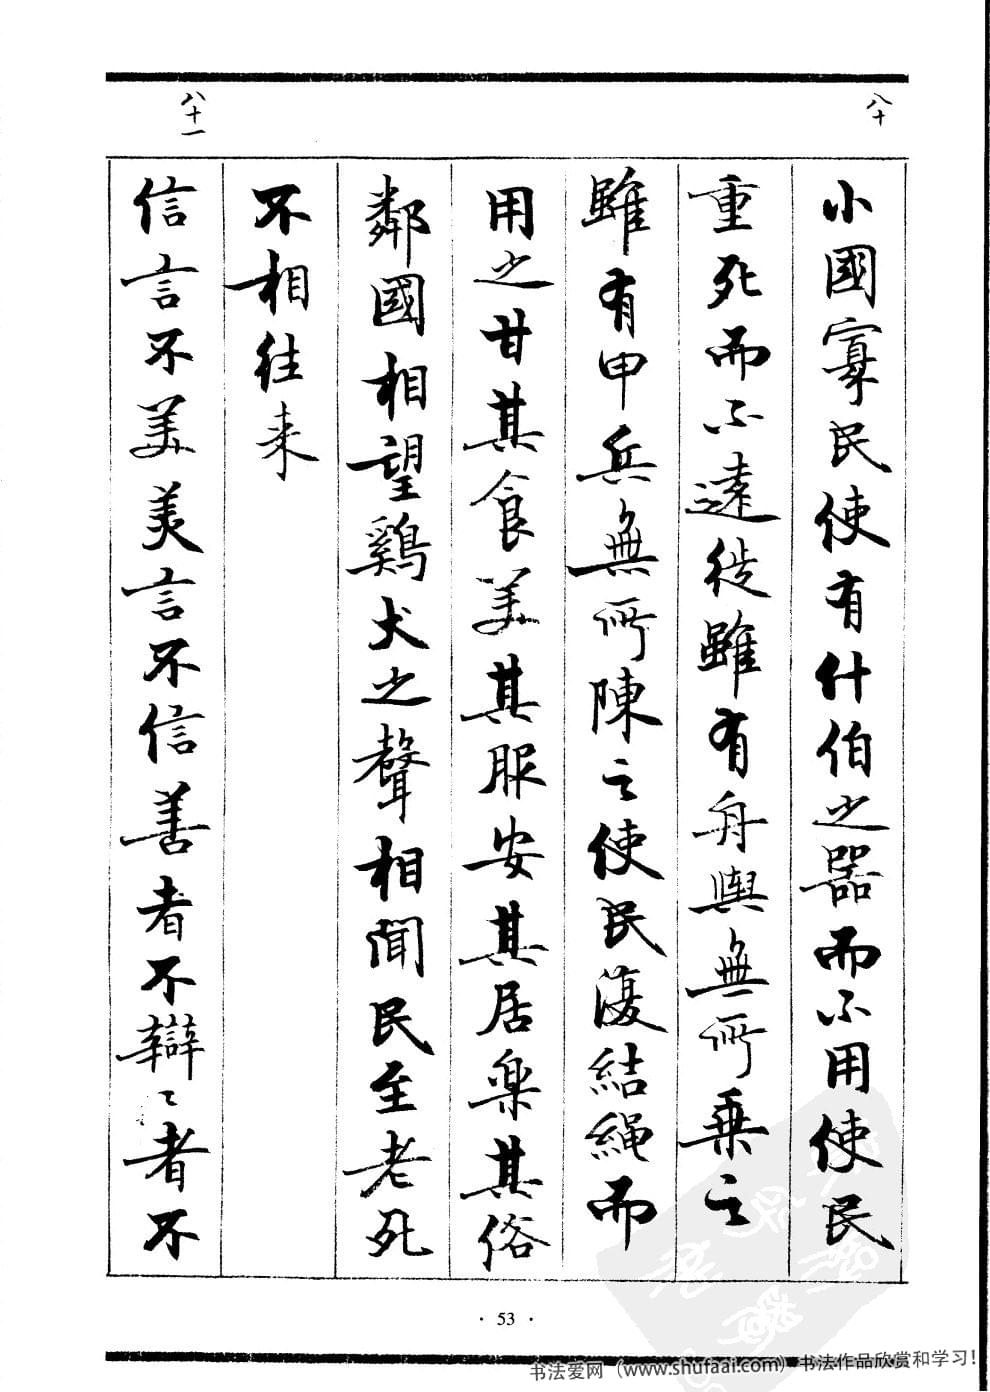 八十
小國寡民使有什伯之器而不用使民
重死而不遠徙雖有舟輿無所乗之
雖有甲兵無所陳之使民復結繩而
用之甘其食美其服安其居樂其俗
鄰國相望鷄犬之聲相聞民至老死
不相往来
八十一
信言不美美言不信善者不辯〻者不
· 53 ·
书法爱网（www.shufaai.com）书法作品欣赏和学习！